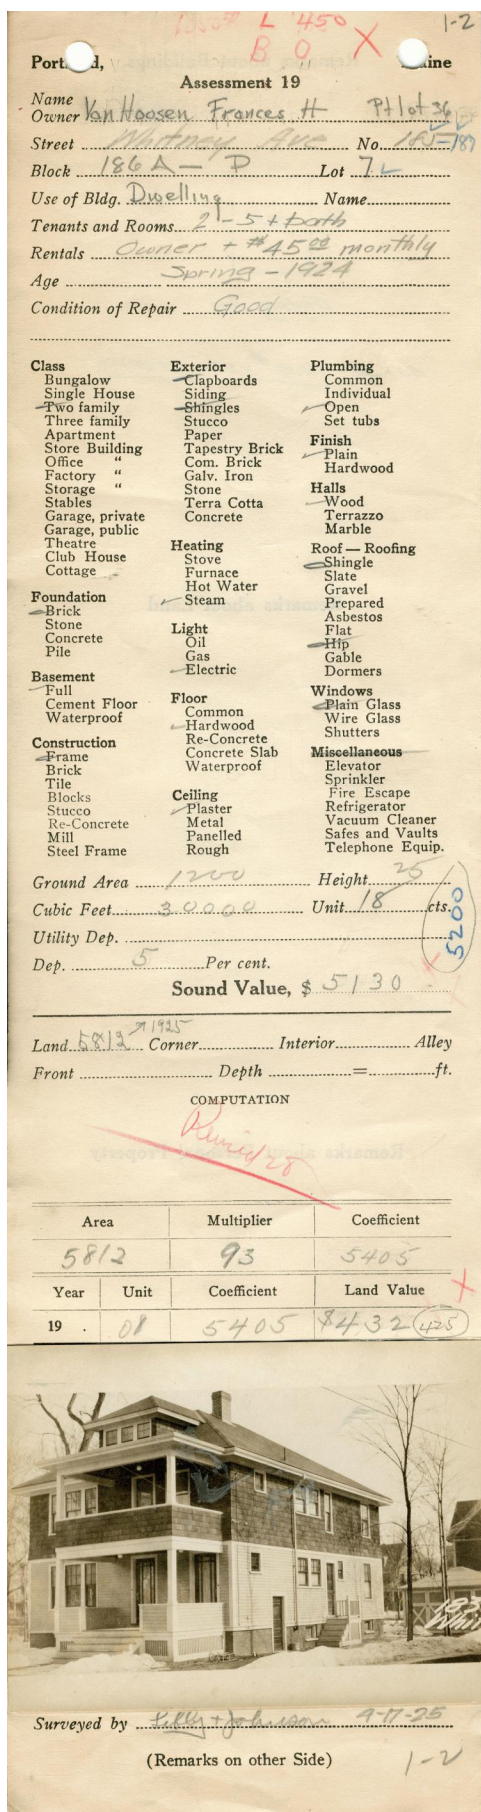 L 450
B O X
1-2
Portland, Maine
Assessment 19
Name
Owner Van Hoosen Frances H Pt lot 36
Street Whitney Ave No. 185-187
Block 186A - D Lot 7
Use of Bldg. Dwelling Name
Tenants and Rooms 2 - 5 + bath
Rentals Owner + $45.00 monthly
Age Spring - 1924
Condition of Repair Good
Class
Bungalow
Single House
Two family
Three family
Apartment
Store Building
Office "
Factory "
Storage "
Stables
Garage, private
Garage, public
Theatre
Club House
Cottage
Foundation
Brick
Stone
Concrete
Pile
Basement
Full
Cement Floor
Waterproof
Construction
Frame
Brick
Tile
Blocks
Stucco
Re-Concrete
Mill
Steel Frame
Exterior
Clapboards
Siding
Shingles
Stucco
Paper
Tapestry Brick
Com. Brick
Galv. Iron
Stone
Terra Cotta
Concrete
Heating
Stove
Furnace
Hot Water
Steam
Light
Oil
Gas
Electric
Floor
Common
Hardwood
Re-Concrete
Concrete Slab
Waterproof
Ceiling
Plaster
Metal
Panelled
Rough
Plumbing
Common
Individual
Open
Set tubs
Finish
Plain
Hardwood
Halls
Wood
Terrazzo
Marble
Roof — Roofing
Shingle
Slate
Gravel
Prepared
Asbestos
Flat
Hip
Gable
Dormers
Windows
Plain Glass
Wire Glass
Shutters
Miscellaneous
Elevator
Sprinkler
Fire Escape
Refrigerator
Vacuum Cleaner
Safes and Vaults
Telephone Equip.
Ground Area 1200 Height 25
Cubic Feet 30000 Unit 18 cts.
5200
Utility Dep.
Dep. 5 Per cent.
Sound Value, $ 5130
1925
Land 5812 Corner Interior Alley
Front Depth = ft.
COMPUTATION
Revised 28
Area Multiplier Coefficient
5812 93 5405
Year Unit Coefficient Land Value
19 . 08 5405 $432 425
183
Whit
Surveyed by Libby + Johnson 9-17-25
(Remarks on other Side) 1-2